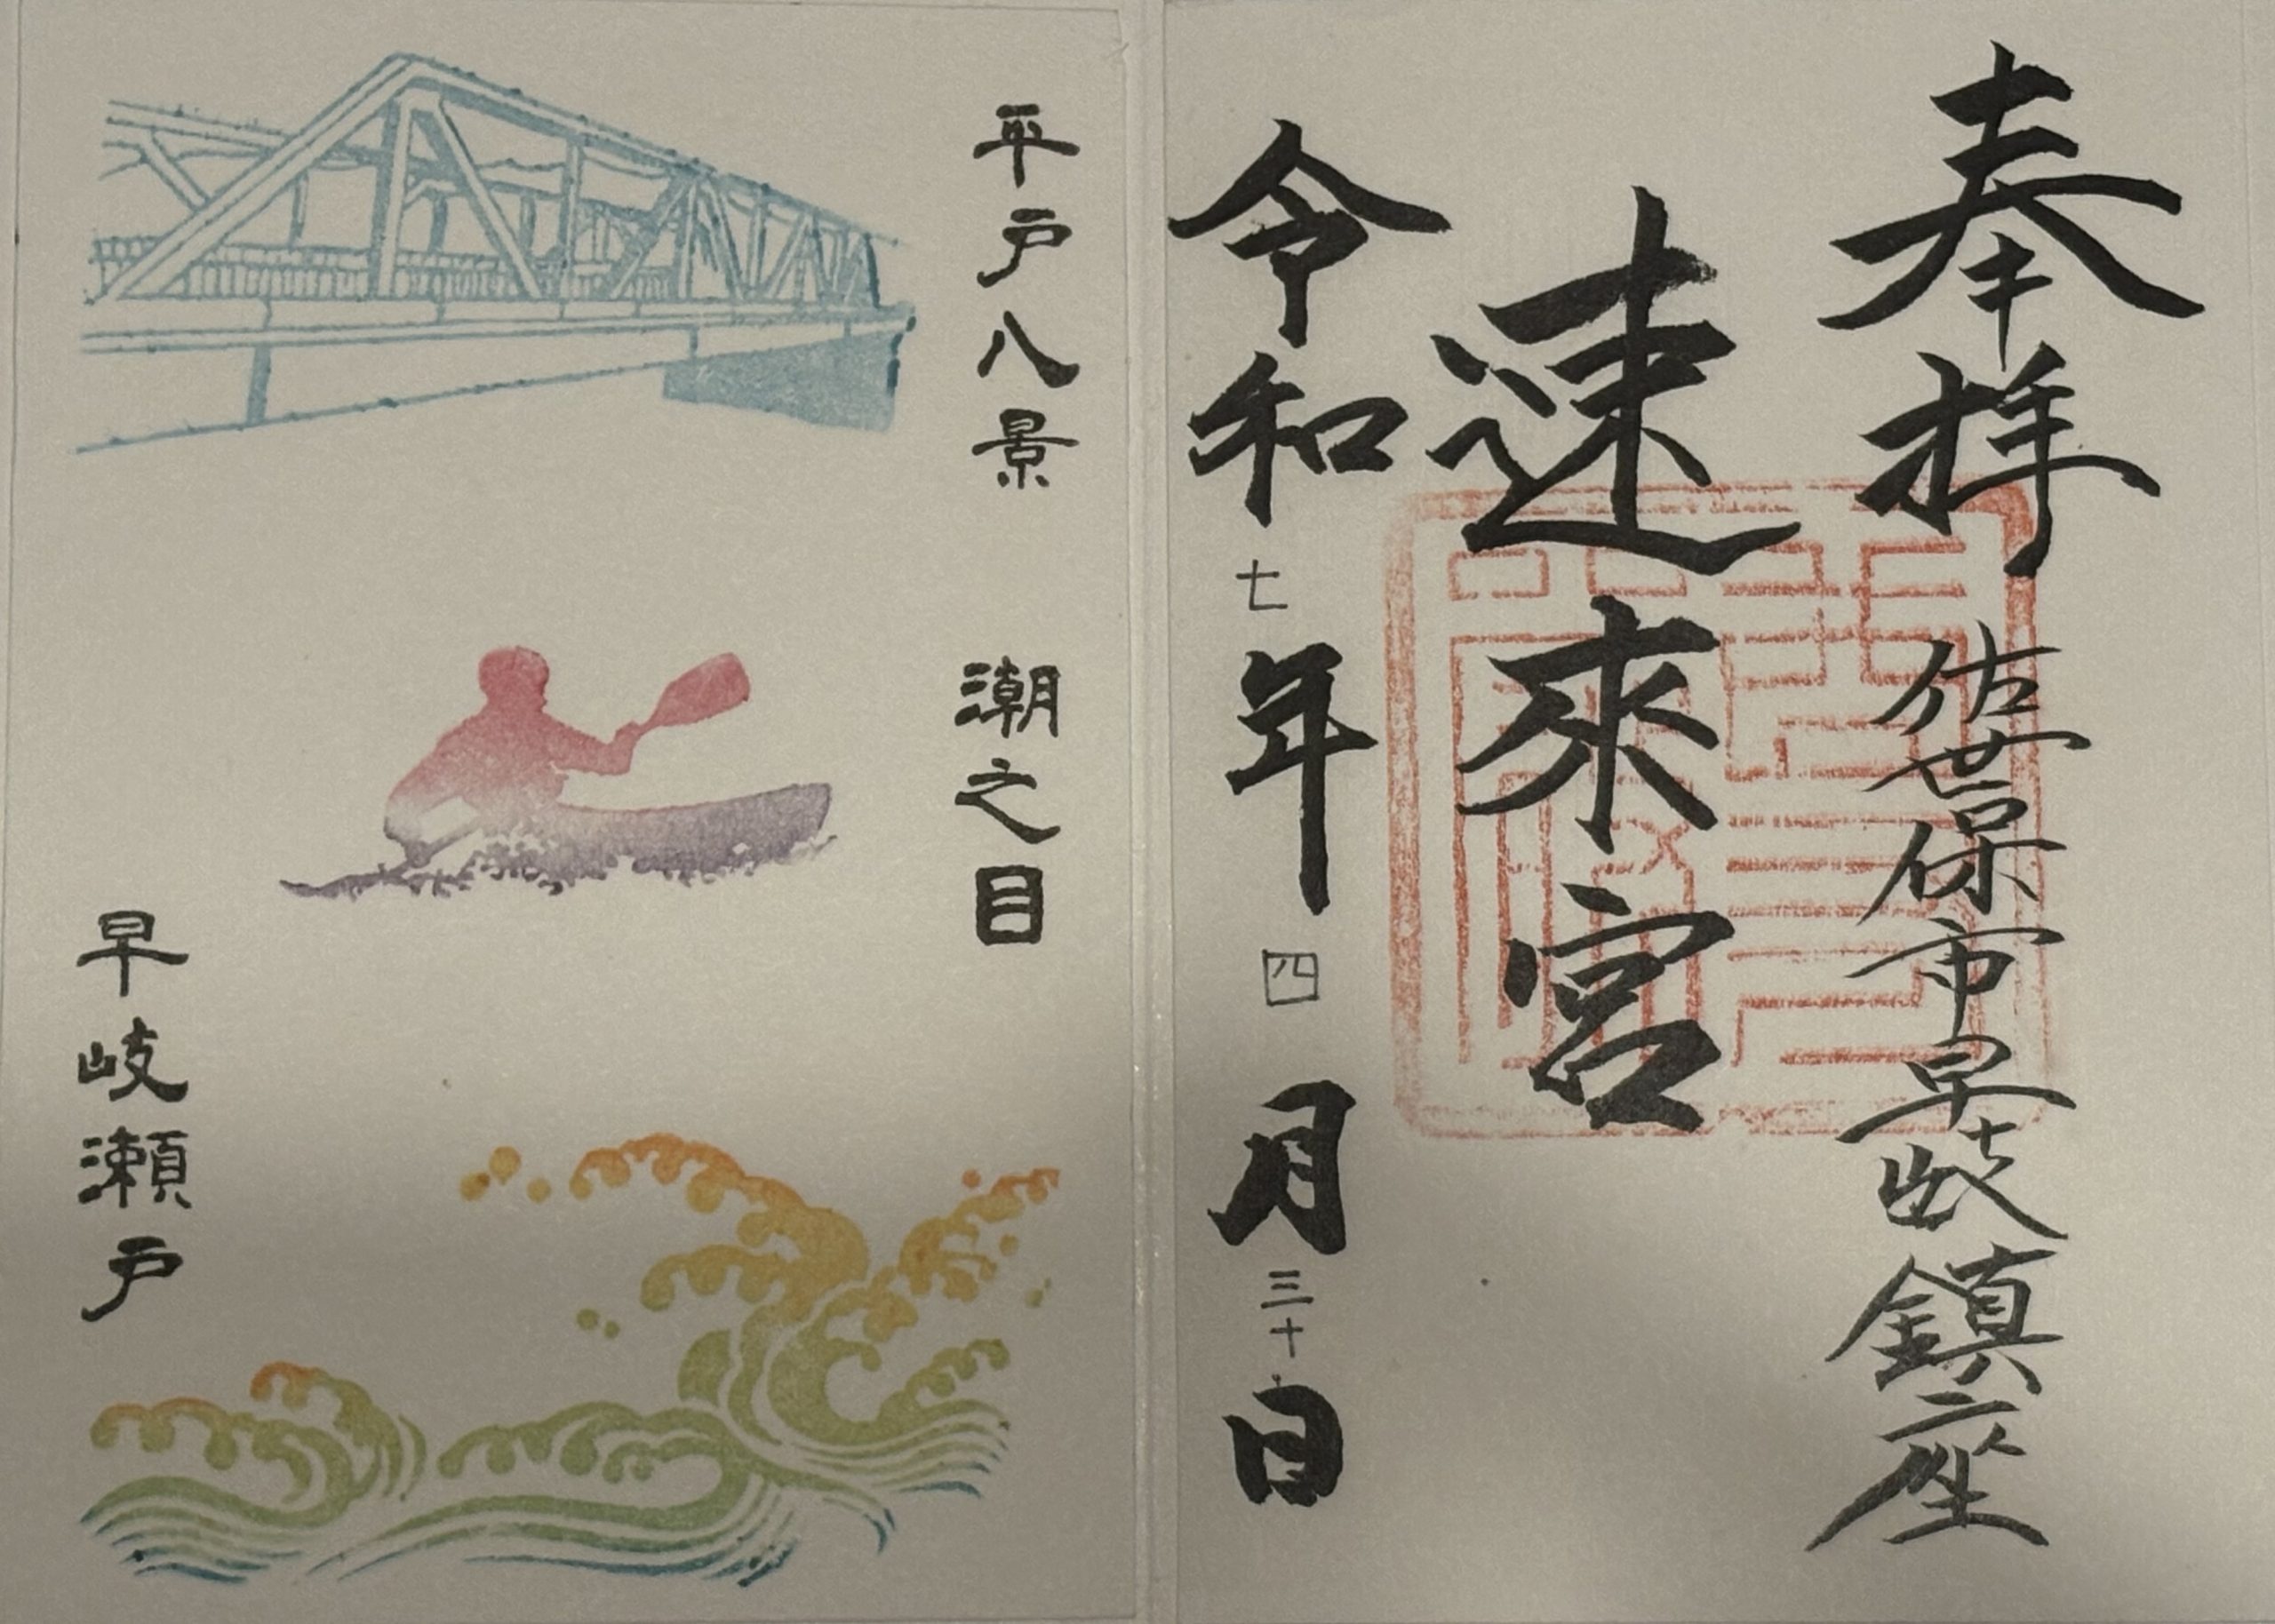 奉拝
佐世保市早岐鎮座
速來宮
令和七年四月三十日
平戸八景
潮之目
早岐瀬戸